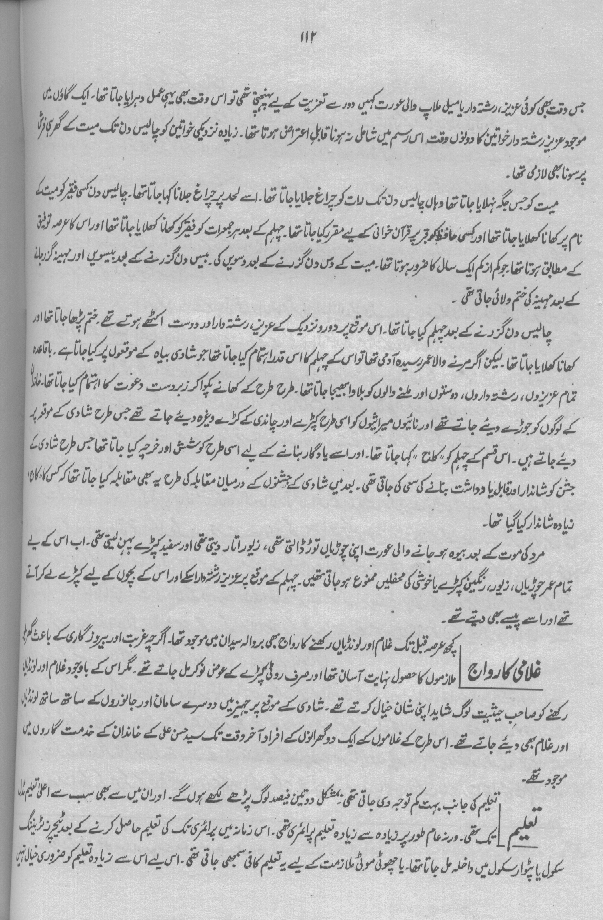 ۱۱۲
جس وقت بھی کوئی عزیز، رشتہ دار یا میل ملاپ والی عورت کہیں دور سے تعزیت کے لیے پہنچتی تھی تو اس وقت بھی یہی عمل دہرایا جاتا تھا۔ ایک گاؤں میں
موجود عزیز رشتہ دار خواتین کا دونوں وقت اس رسم میں شامل نہ ہونا قابلِ اعتراض ہوتا تھا۔ زیادہ نزدیکی خواتین کو چالیس دن تک میت کے گھر ہی فرش
پر سونا بھی لازمی تھا۔
میت کو جس جگہ نہلایا جاتا تھا وہاں چالیس دن تک رات کو چراغ جلایا جاتا تھا۔ اسے لحد پر چراغ جلانا کہا جاتا تھا۔ چالیس دن کسی فقیر کو میت کے
نام پر کھانا کھلایا جاتا تھا اور کسی حافظ کو قبر پر قرآن خوانی کے لیے مقرر کیا جاتا تھا۔ چہلم کے بعد ہر جمعرات کو فقیر کو کھانا کھلایا جاتا تھا اور اس کا عرصہ توفیق
کے مطابق ہوتا تھا۔ جو کم از کم ایک سال کا ضرور ہوتا تھا۔ میت کے دس دن گزرنے کے بعد دسویں کی۔ بیس دن گزرنے کے بعد بیسویں اور مہینہ گزر جانے
کے بعد مہینہ کی ختم دلائی جاتی تھی۔
چالیس دن گزرنے کے بعد چہلم کیا جاتا تھا۔ اس موقع پر دور و نزدیک کے عزیز، رشتہ دار اور دوست اکٹھے ہوتے تھے۔ ختم پڑھا جاتا تھا اور
کھانا کھلایا جاتا تھا۔ لیکن اگر مرنے والا عمر رسیدہ آدمی تھا تو اس کے چہلم کا اس قدر اہتمام کیا جاتا تھا جو شادی بیاہ کے موقعوں پر کیا جاتا ہے۔ باقاعدہ
تمام عزیزوں، رشتہ داروں، دوستوں اور ملنے والوں کو بلاوا بھیجا جاتا تھا۔ طرح طرح کے کھانے پکوا کر زبردست دعوت کا اہتمام کیا جاتا تھا۔
کے لوگوں کو جوڑے دیئے جاتے تھے اور نائیوں میراثیوں کو اسی طرح کپڑے اور چاندی کے کڑے وغیرہ دیئے جاتے تھے جس طرح شادی کے موقع پر
دیئے جاتے ہیں۔ اس قسم کے چہلم کو کہا جاتا تھا۔ اور اسے یادگار بنانے کے لیے اسی طرح کوشش اور خرچہ کیا جاتا تھا جس طرح شادی کے
جشن کو شاندار اور قابل یادداشت بنانے کی سعی کی جاتی تھی۔ بعد میں شادی کے جشنوں کے درمیان مقابلہ کی طرح یہ بھی مقابلہ کیا جاتا تھا کہ کس کا
زیادہ شاندار کیا گیا تھا۔
مرد کی موت کے بعد بیوہ ہو جانے والی عورت اپنی چوڑیاں توڑ ڈالتی تھی، زیور اتار دیتی تھی اور سفید کپڑے پہن لیتی تھی۔ اب اس کے لیے
تمام عمر چوڑیاں، زیور، رنگین کپڑے یا خوشی کی محفلیں ممنوع ہو جاتی تھیں۔ چہلم کے موقع پر عزیز رشتہ دار اسکے اور اس کے بچوں کے لیے کپڑے لے کر آتے
تھے اور اسے پیسے بھی دیتے تھے۔
غلامی کا رواج
کچھ عرصہ قبل تک غلام اور لونڈیاں رکھنے کا رواج بھی بروالہ سیدان میں موجود تھا۔ اگرچہ غربت اور بیروزگاری کے باعث گھریلو
ملازموں کا حصول نہایت آسان تھا اور صرف روٹی کپڑے کے عوض نوکر مل جاتے تھے۔ مگر اس کے باوجود غلام اور لونڈیاں
رکھنے کو صاحبِ حیثیت لوگ شاید اپنی شان خیال کرتے تھے۔ شادی کے موقع پر جہیز میں دوسرے سامان اور جانوروں کے ساتھ ساتھ لونڈیاں
اور غلام بھی دیئے جاتے تھے۔ اس طرح کے غلاموں کے ایک دو گھرانوں کے افراد آخر وقت تک سید حسن علی کے خاندان کے خدمت گاروں میں
موجود تھے۔
تعلیم
تعلیم کی جانب بہت کم توجہ دی جاتی تھی۔ بمشکل دو تین فیصد لوگ پڑھے لکھے ہوں گے۔ اور ان میں سے بھی سب سے اعلیٰ تعلیم
تک تھی۔ ورنہ عام طور پر زیادہ سے زیادہ تعلیم پرائمری تھی۔ اس زمانہ میں پرائمری تک کی تعلیم حاصل کرنے کے بعد ٹیچرز ٹریننگ
سکول یا پٹوار سکول میں داخلہ مل جاتا تھا۔ یا چھوٹی موٹی ملازمت کے لیے یہ تعلیم کافی سمجھی جاتی تھی۔ اس لیے اس سے زیادہ تعلیم کو ضروری خیال نہیں